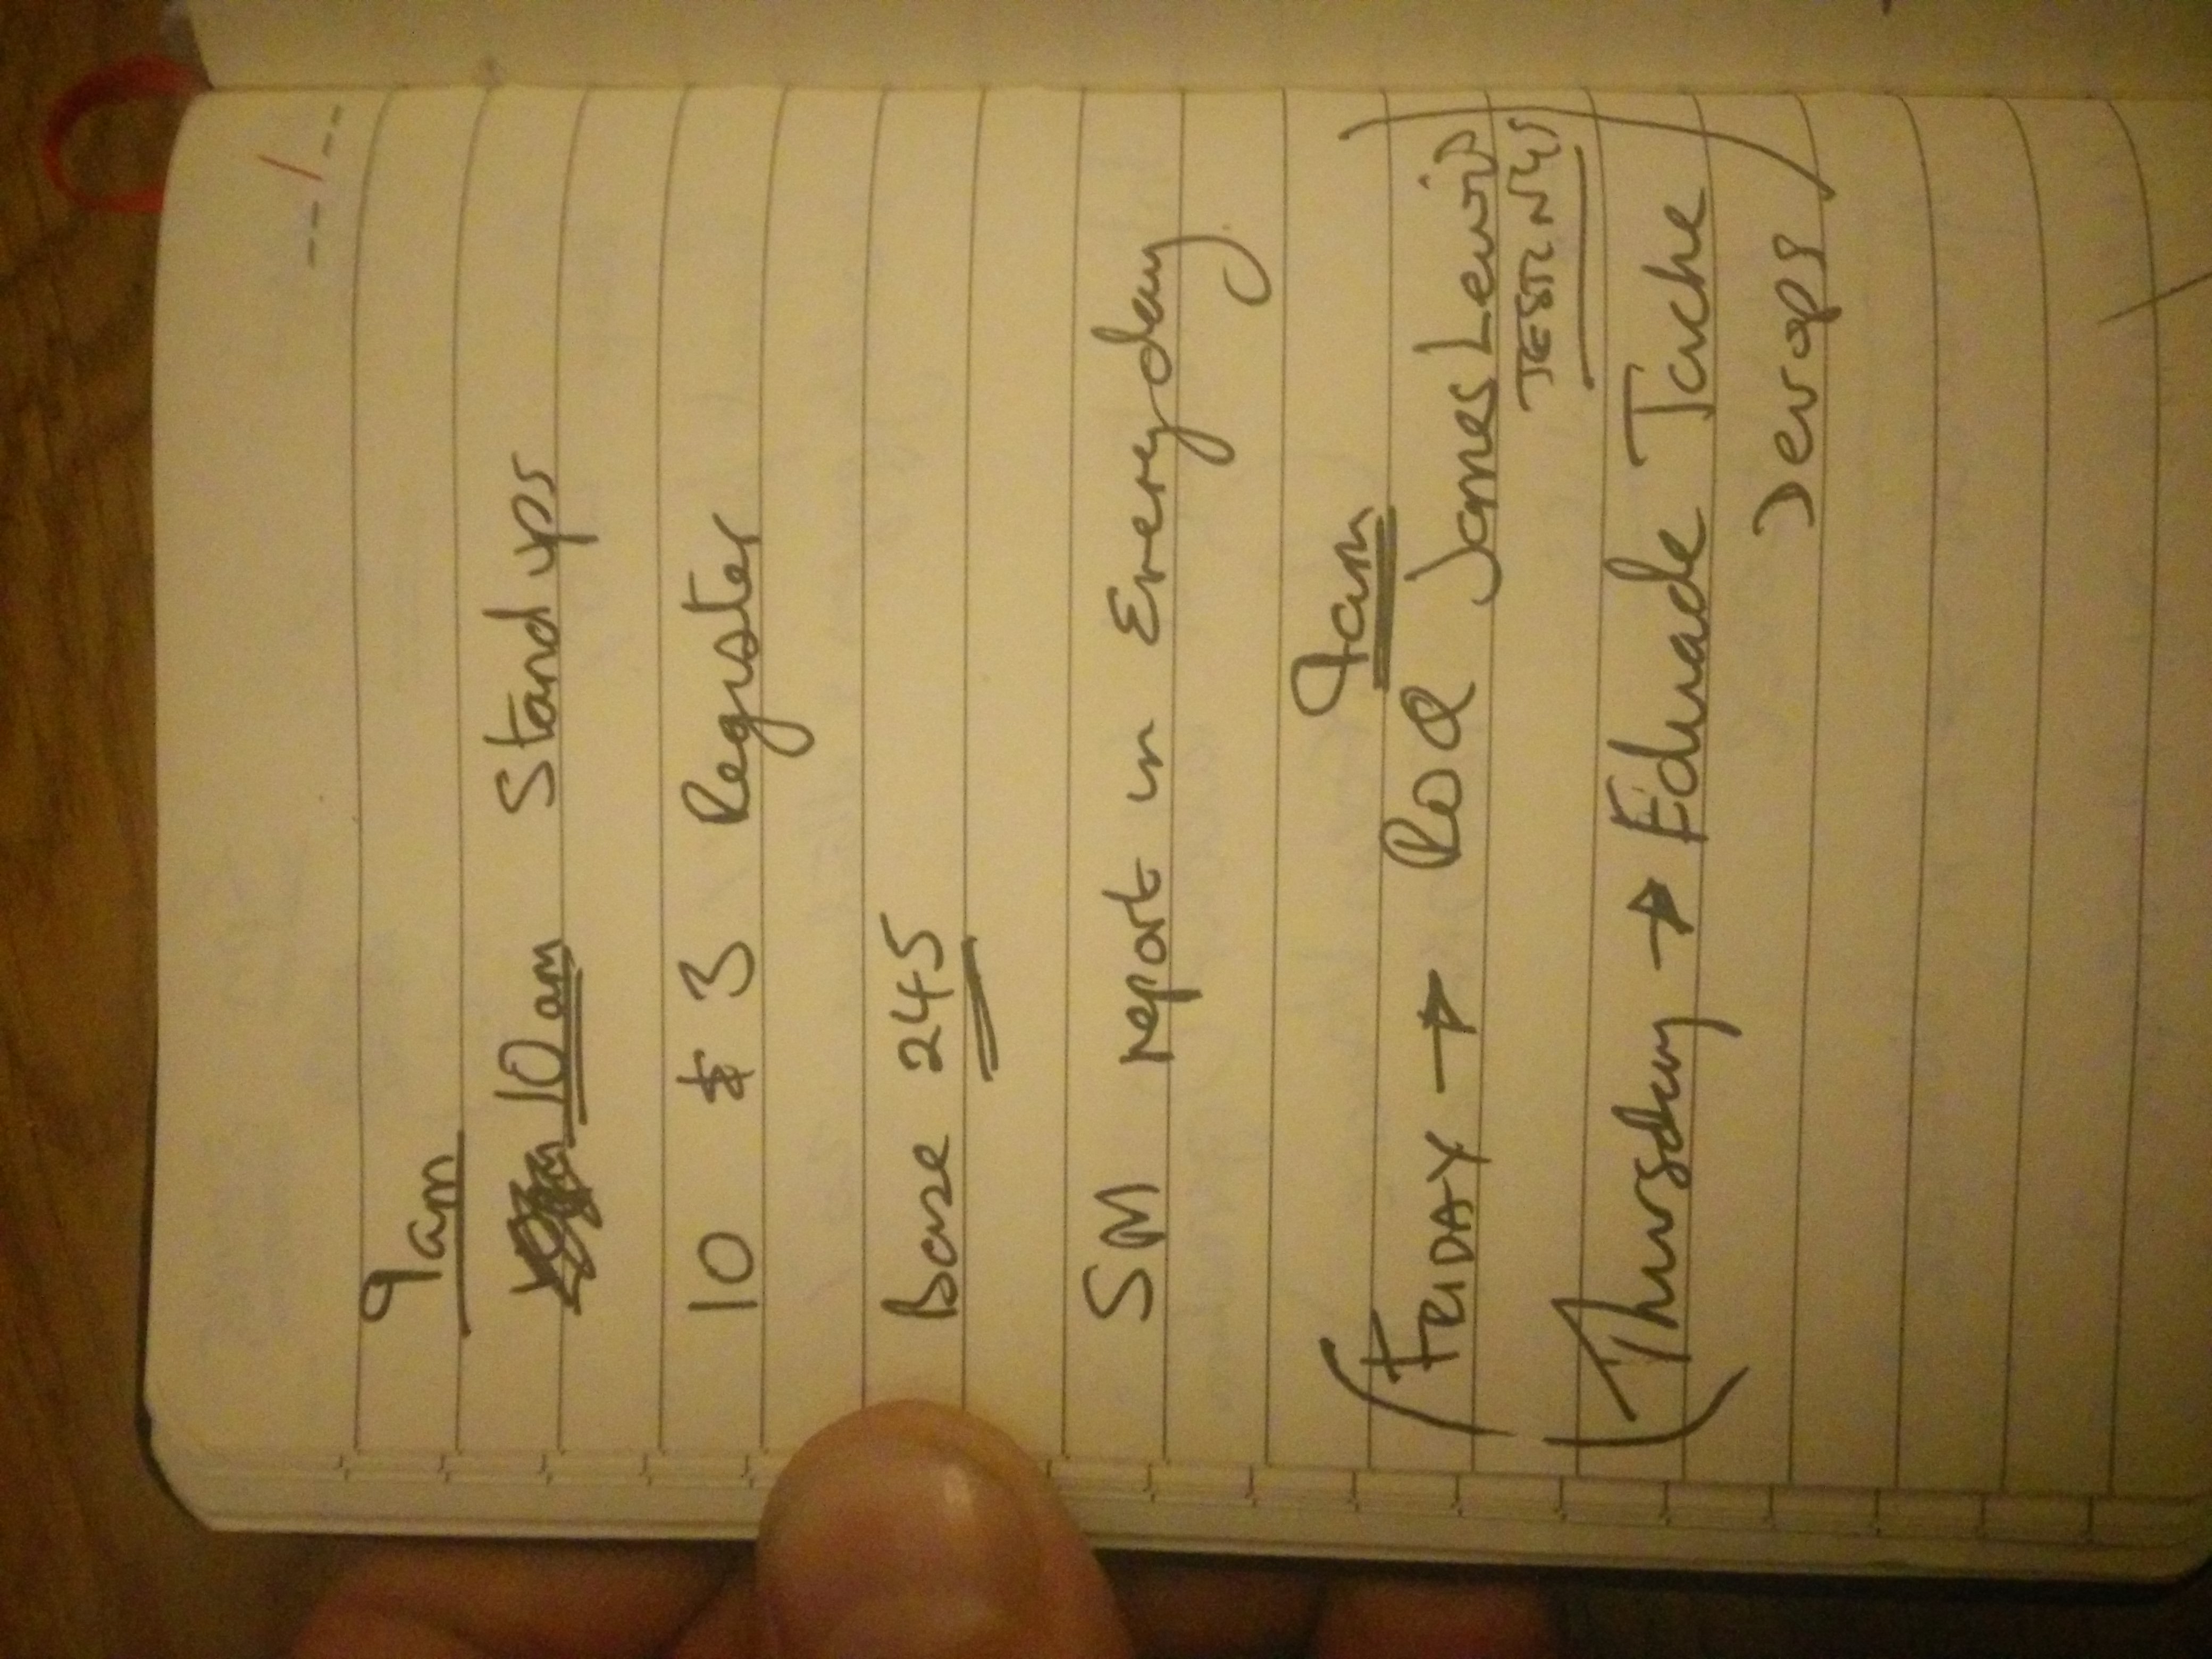 9am
10am Stand ups
10 & 3 Register
Base 245
SM report in Everyday
9am
FRIDAY → Rod James Lewis
TESTING
Thursday → Eduade Tache
Devops